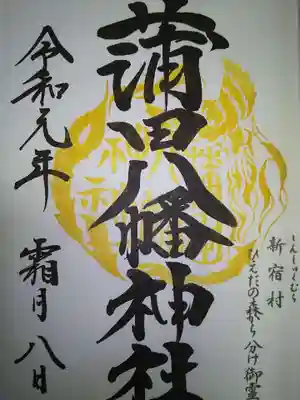 しんしゅくむら
新宿村
ひえだの森ゟ分け御霊
蒲田八幡神社
令和元年
霜月八日